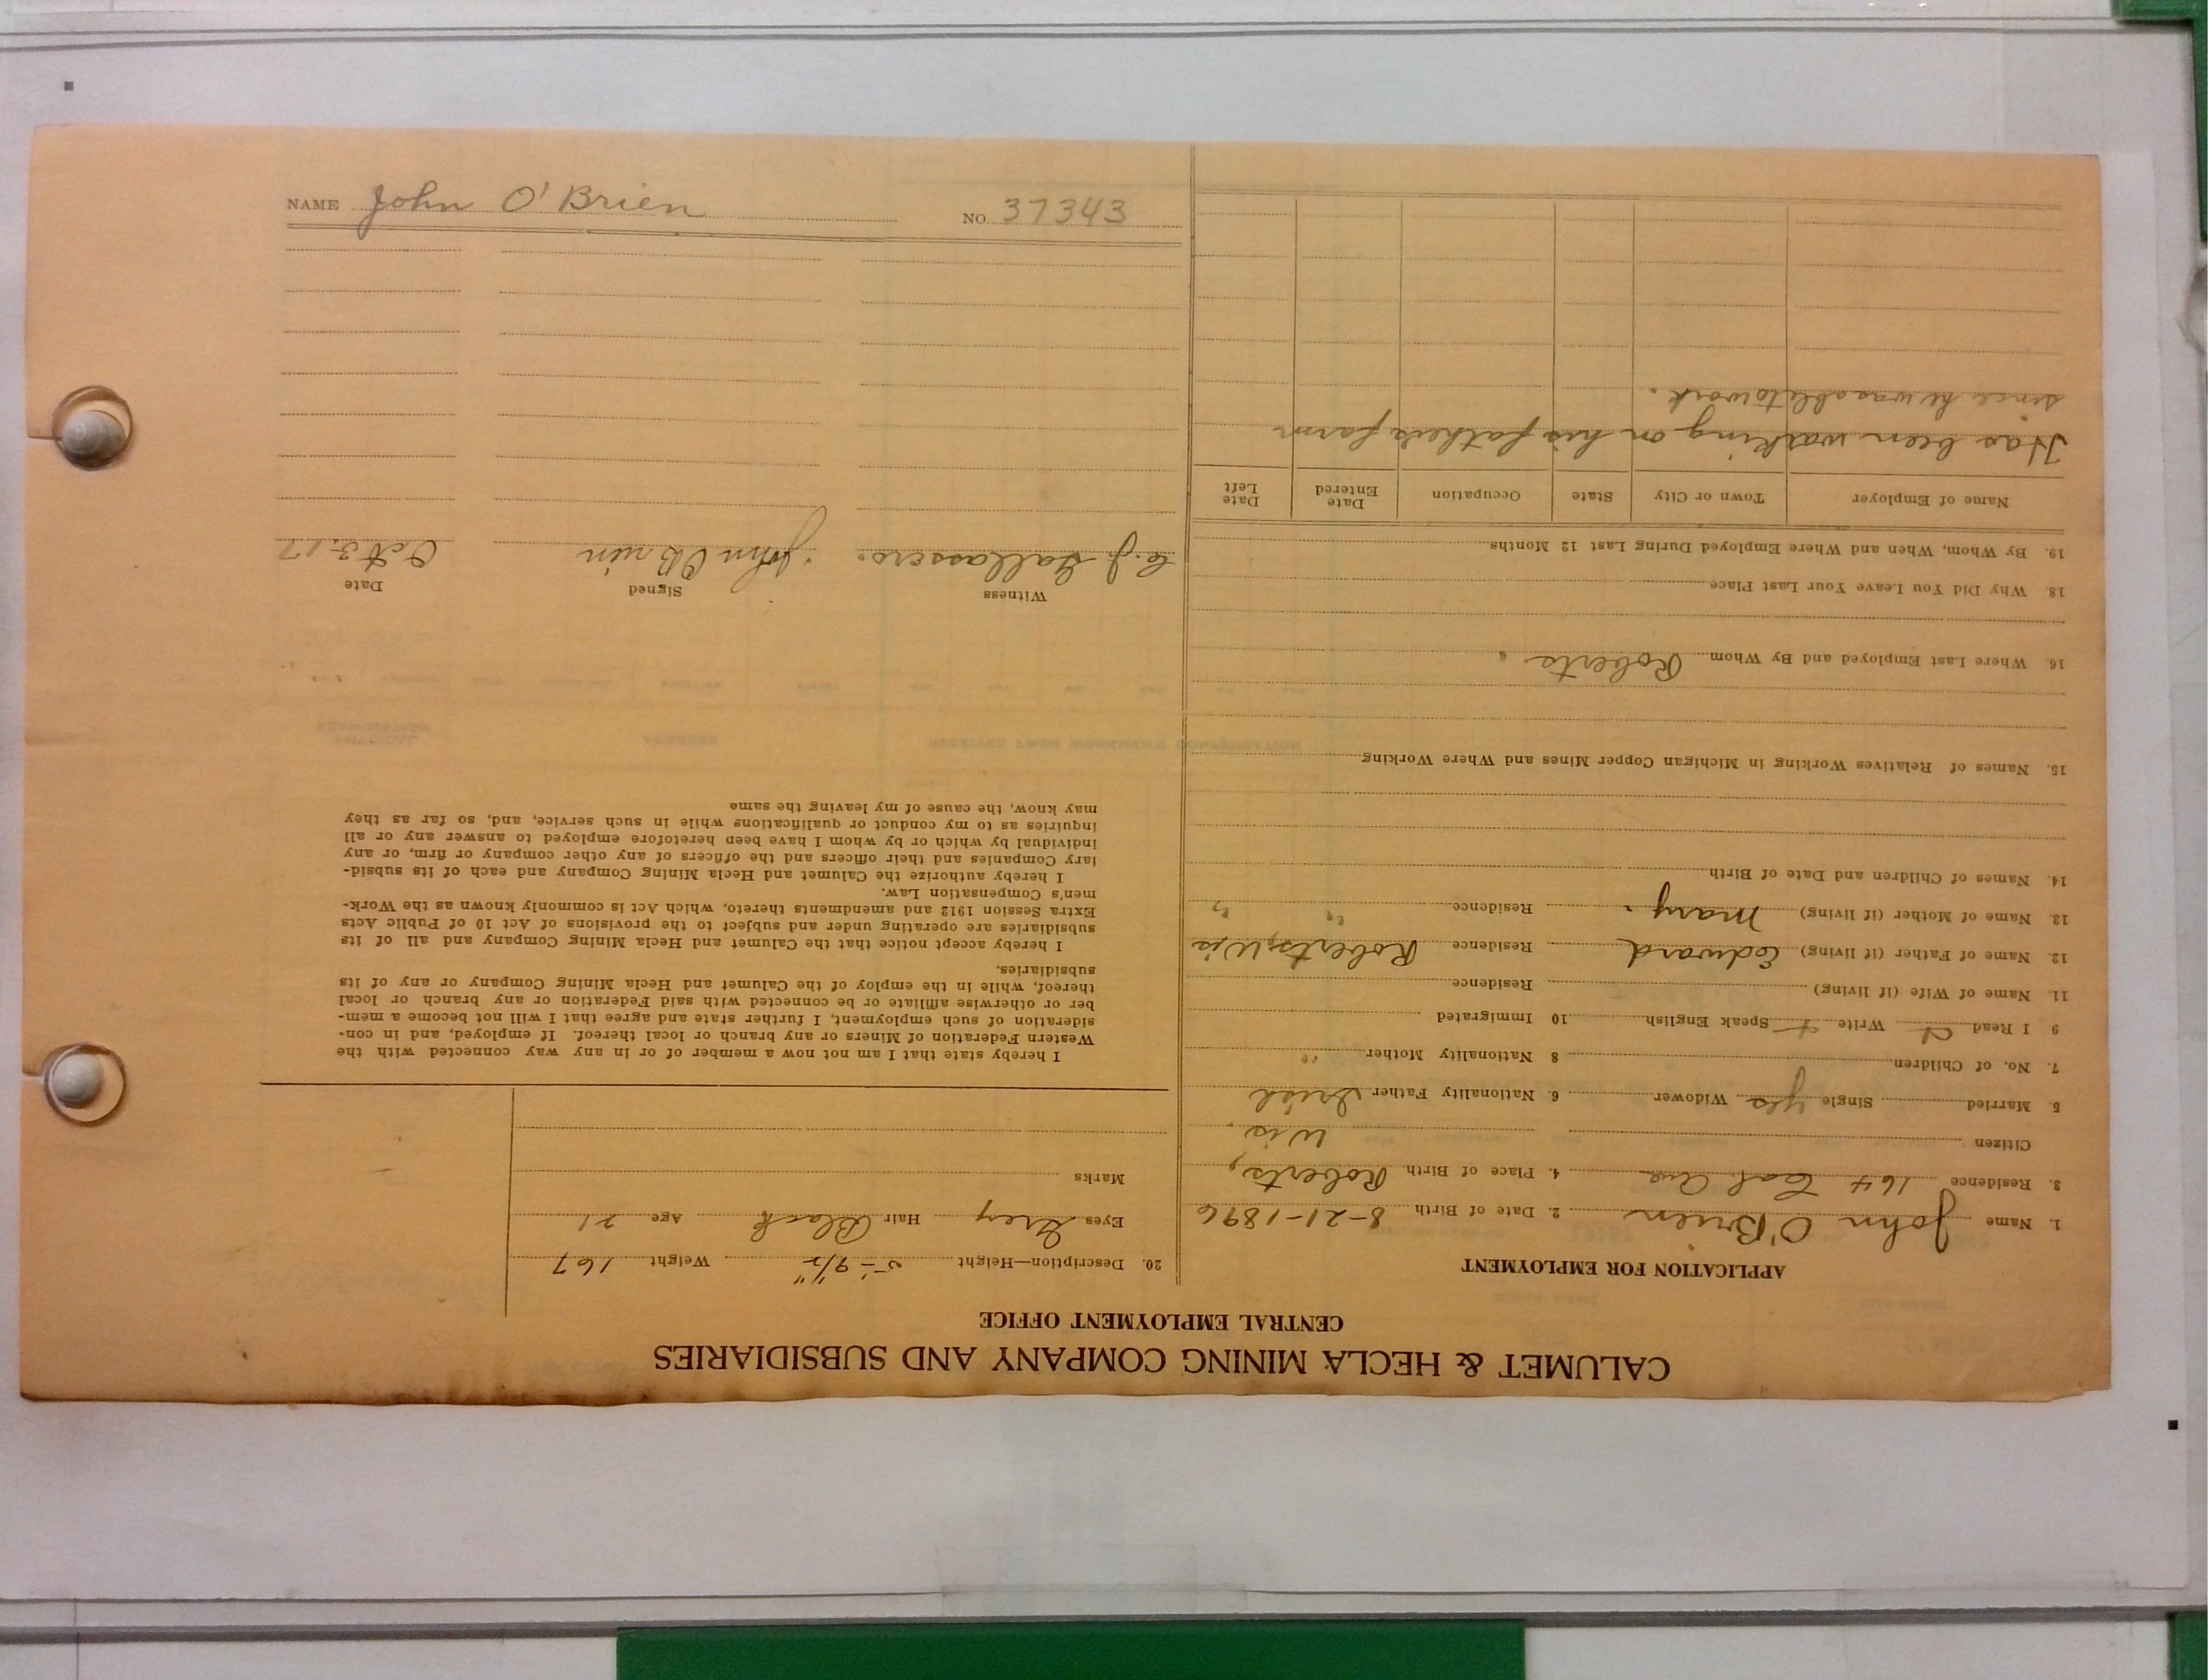 CALUMET & HECLA MINING COMPANY AND SUBSIDIARIES
CENTRAL EMPLOYMENT OFFICE
APPLICATION FOR EMPLOYMENT
1. Name John O'Brien 2. Date of Birth 8-21-1896
3. Residence 164 Cal. Ave 4. Place of Birth Roberts,
Citizen Wis.
5. Married Single Yes Widower 6. Nationality Father Irish
7. No. of Children 8 Nationality Mother "
9 I Read Write Speak English 10 Immigrated
11. Name of Wife (if living) Residence
12. Name of Father (if living) Edward Residence Roberts, Wis
13. Name of Mother (if living) Mary. Residence " "
14. Names of Children and Date of Birth
15. Names of Relatives Working in Michigan Copper Mines and Where Working
16. Where Last Employed and By Whom Roberts.
18. Why Did You Leave Your Last Place
19. By Whom, When and Where Employed During Last 12 Months
Name of Employer Town or City State Occupation Date Entered Date Left
Has been working on his father's farm
since he was able to work.
20. Description—Height 5'-9½" Weight 167
Eyes Grey Hair Black Age 21
Marks
I hereby state that I am not now a member of or in any way connected with the
Western Federation of Miners or any branch or local thereof. If employed, and in con-
sideration of such employment, I further state and agree that I will not become a mem-
ber or otherwise affiliate or be connected with said Federation or any branch or local
thereof, while in the employ of the Calumet and Hecla Mining Company or any of its
subsidiaries.
I hereby accept notice that the Calumet and Hecla Mining Company and all of its
subsidiaries are operating under and subject to the provisions of Act 10 of Public Acts
Extra Session 1912 and amendments thereto, which Act is commonly known as the Work-
men's Compensation Law.
I hereby authorize the Calumet and Hecla Mining Company and each of its subsid-
iary Companies and their officers and the officers of any other company or firm, or any
individual by which or by whom I have been heretofore employed to answer any or all
inquiries as to my conduct or qualifications while in such service, and, so far as they
may know, the cause of my leaving the same
Witness Signed Date
C. J. Gallassero. John O'Brien Oct 3.17
NAME John O'Brien NO. 37343